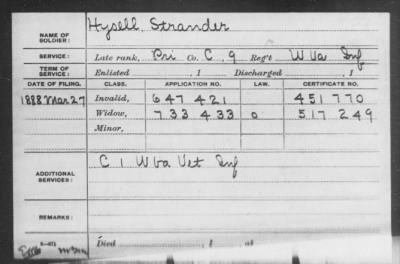 NAME OF SOLDIER: Hysell, Strander
SERVICE: Late rank, Pri Co. C, 9 Reg't W Va Inf
TERM OF SERVICE: Enlisted , 1 Discharged , 1
DATE OF FILING. CLASS. APPLICATION NO. LAW. CERTIFICATE NO.
1888 Mar 27 Invalid, 647 421 451 770
Widow, 733 433 o 517 249
Minor,
ADDITIONAL SERVICES: C 1 W Va Vet Inf
REMARKS:
Died , 1 at